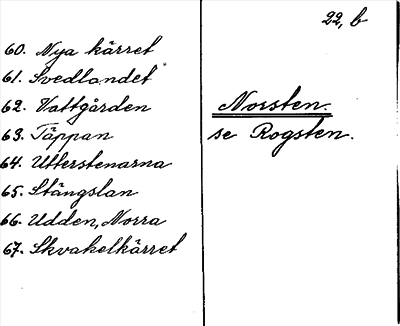 60. Nya kärret
61. Svedlandet
62. Vattgården
63. Täppan
64. Utterstenarna
65. Stängslan
66. Udden, Norra
67. Skvakelkärret
22, b
Norsten.
se Rogsten.